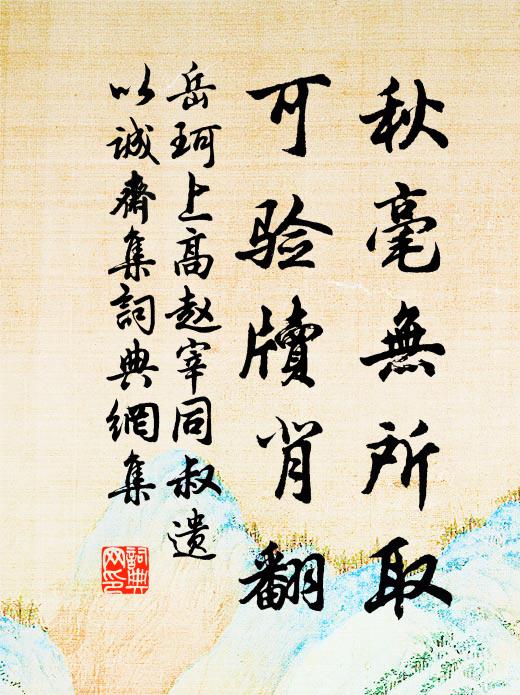 秋毫無所取
可验牍背翻
岳珂上高赵宰同叔遗
以诚斋集詞典網集
詞典网印